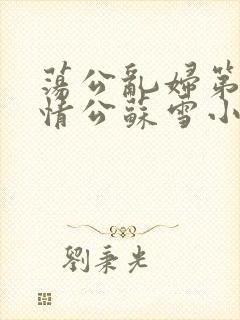 蕩公亂婦第
情公蘇雪小
劉秉光